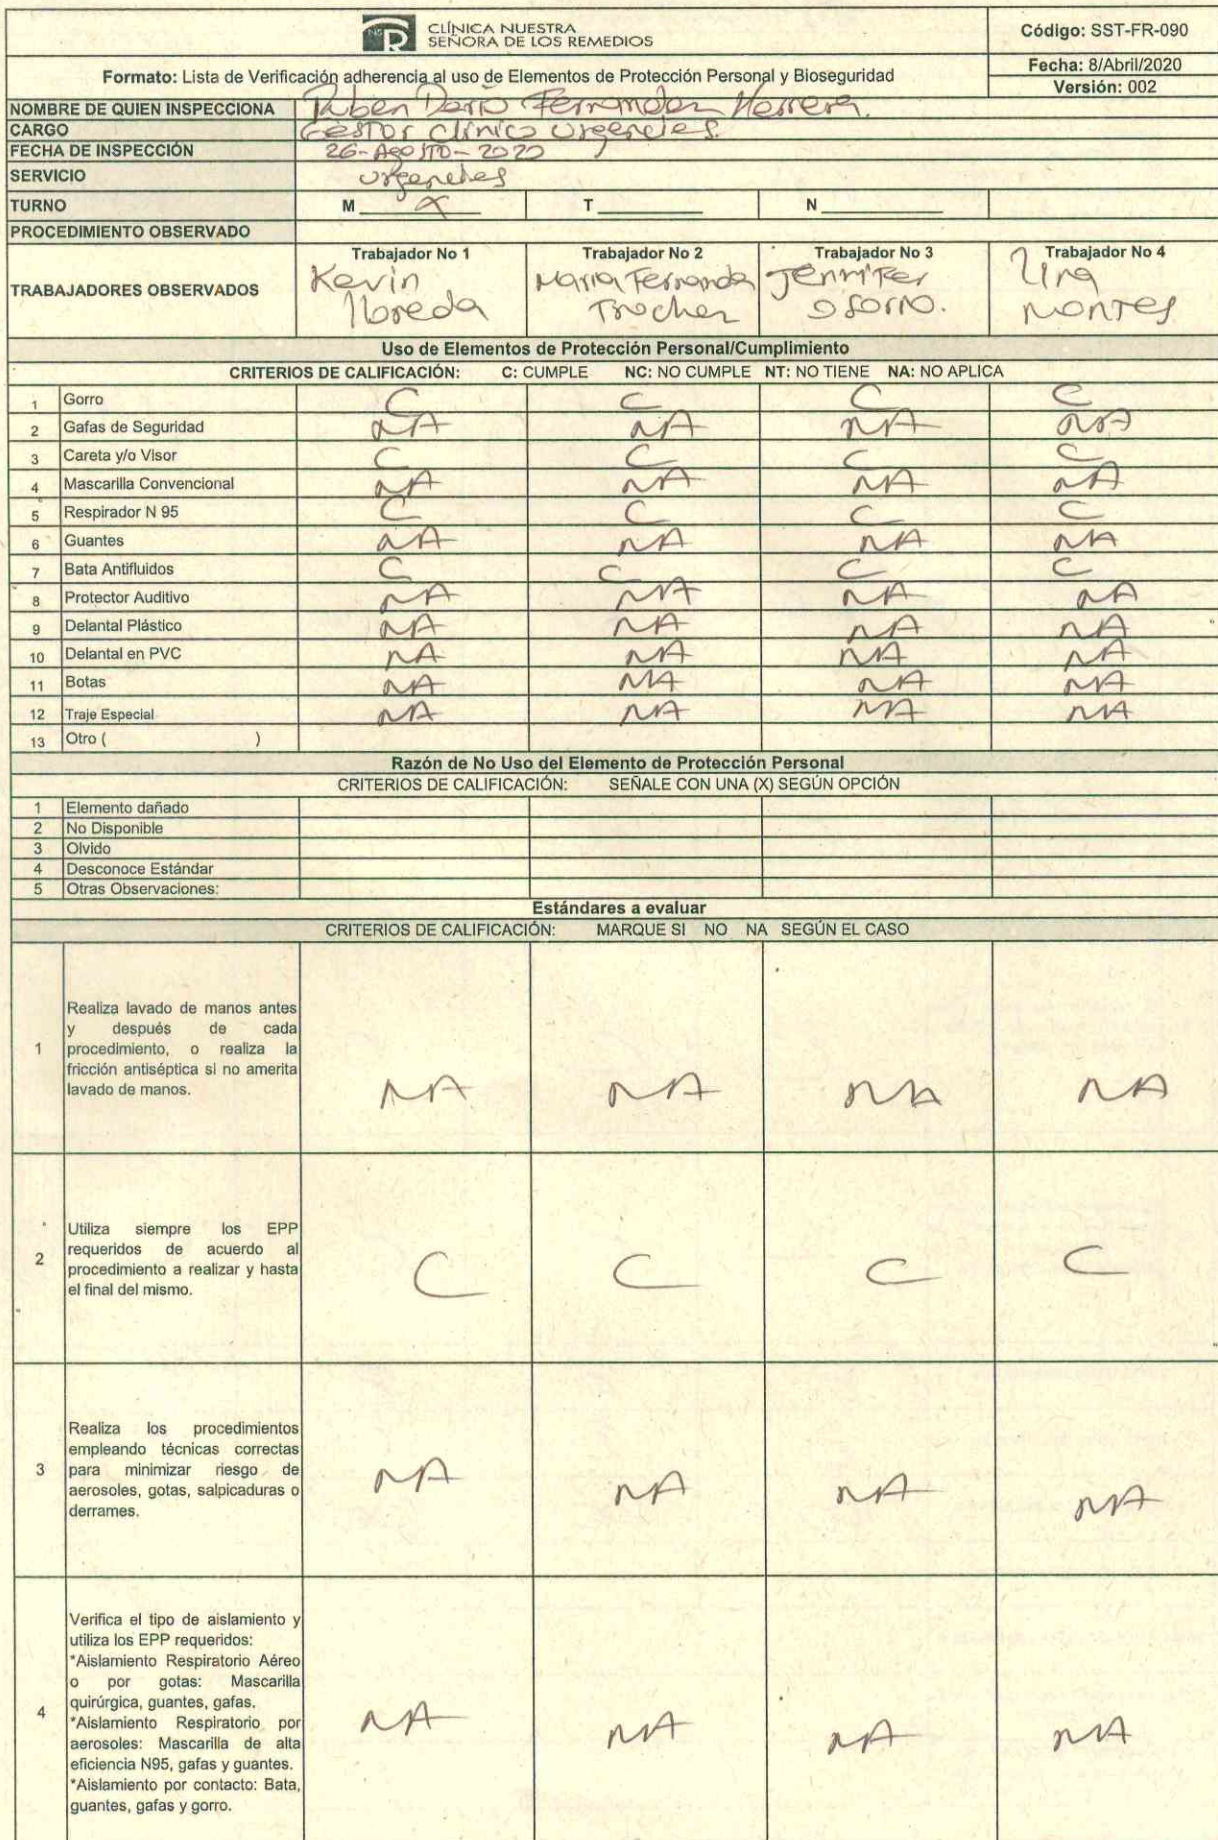 CLÍNICA NUESTRA
SEÑORA DE LOS REMEDIOS
Código: SST-FR-090
Formato: Lista de Verificación adherencia al uso de Elementos de Protección Personal y Bioseguridad
Fecha: 8/Abril/2020
Versión: 002
NOMBRE DE QUIEN INSPECCIONA Ruben Dario Fernandez Herrera.
CARGO Gestor clínico Urgencias.
FECHA DE INSPECCIÓN 26-Agosto-2020
SERVICIO Urgencias
TURNO M X T N
PROCEDIMIENTO OBSERVADO
TRABAJADORES OBSERVADOS
Trabajador No 1 Trabajador No 2 Trabajador No 3 Trabajador No 4
Kevin Maria Fernanda Jennifer Lina
Trochez Osorno. Montes
Uso de Elementos de Protección Personal/Cumplimiento
CRITERIOS DE CALIFICACIÓN: C: CUMPLE NC: NO CUMPLE NT: NO TIENE NA: NO APLICA
1 Gorro C C C C
2 Gafas de Seguridad NA NA NA NA
3 Careta y/o Visor C C C C
4 Mascarilla Convencional NA NA NA NA
5 Respirador N 95 C C C C
6 Guantes NA NA NA NA
7 Bata Antifluidos C C C C
8 Protector Auditivo NA NA NA NA
9 Delantal Plástico NA NA NA NA
10 Delantal en PVC NA NA NA NA
11 Botas NA NA NA NA
12 Traje Especial NA NA NA NA
13 Otro ( )
Razón de No Uso del Elemento de Protección Personal
CRITERIOS DE CALIFICACIÓN: SEÑALE CON UNA (X) SEGÚN OPCIÓN
1 Elemento dañado
2 No Disponible
3 Olvido
4 Desconoce Estándar
5 Otras Observaciones:
Estándares a evaluar
CRITERIOS DE CALIFICACIÓN: MARQUE SI NO NA SEGÚN EL CASO
1
Realiza lavado de manos antes
y después de cada
procedimiento, o realiza la
fricción antiséptica si no amerita
lavado de manos.
NA NA NA NA
2
Utiliza siempre los EPP
requeridos de acuerdo al
procedimiento a realizar y hasta
el final del mismo.
C C C C
3
Realiza los procedimientos
empleando técnicas correctas
para minimizar riesgo de
aerosoles, gotas, salpicaduras o
derrames.
NA NA NA NA
4
Verifica el tipo de aislamiento y
utiliza los EPP requeridos:
*Aislamiento Respiratorio Aéreo
o por gotas: Mascarilla
quirúrgica, guantes, gafas.
*Aislamiento Respiratorio por
aerosoles: Mascarilla de alta
eficiencia N95, gafas y guantes.
*Aislamiento por contacto: Bata,
guantes, gafas y gorro.
NA NA NA NA